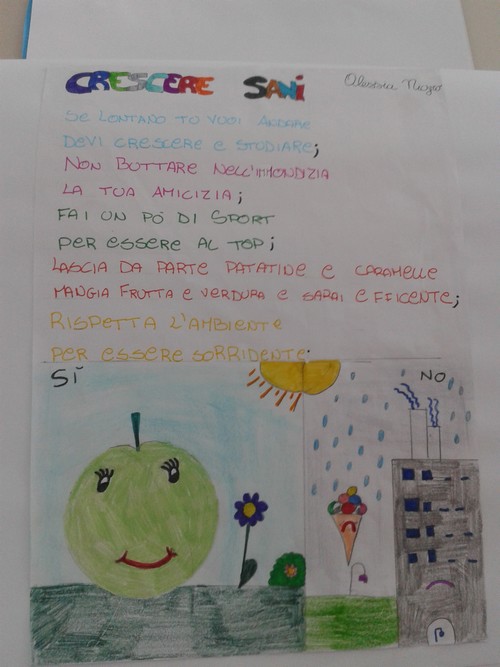 CRESCERE SANI
SE LONTANO TU VUOI ANDARE
DEVI CRESCERE E STUDIARE;
NON BUTTARE NELL'IMMONDIZIA
LA TUA AMICIZIA;
FAI UN PÒ DI SPORT
PER ESSERE AL TOP;
LASCIA DA PARTE PATATINE E CARAMELLE
MANGIA FRUTTA E VERDURA E SARAI EFFICENTE;
RISPETTA L'AMBIENTE
PER ESSERE SORRIDENTE.
SÌ
NO